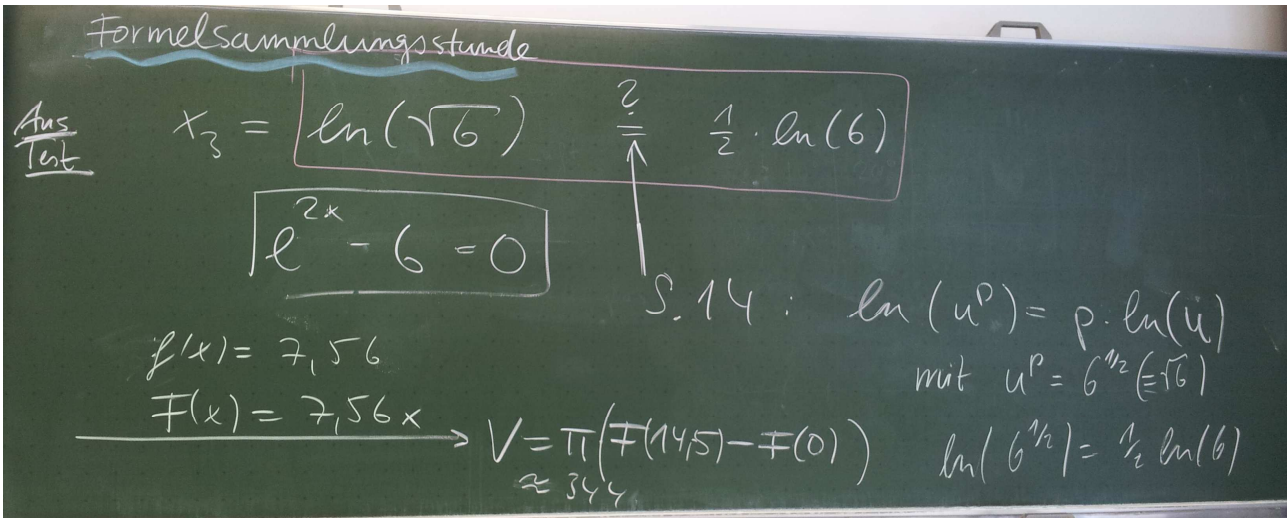 Formelsammlungsstunde
Aus Test
x₃ = ln(√6) ≟ ½ · ln(6)
e^{2x} - 6 = 0
S. 14 : ln(u^p) = p · ln(u)
mit u^p = 6^{1/2} (=√6)
ln(6^{1/2}) = ½ ln(6)
f(x) = 7,56
F(x) = 7,56x
V = π(F(14,5) - F(0))
≈ 344